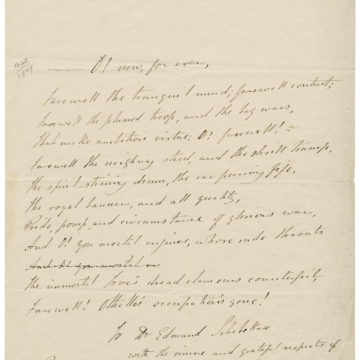 O! now, for ever,
farewell the tranquil mind; farewell content;
farewell the plumed troop, and the big wars,
that make ambition virtue: O! farewell!
farewell the neighing steed, and the shrill trump,
the spirit-stirring drum, the ear-piercing fife,
the royal banner, and all quality,
Pride, pomp, and circumstance of glorious war,
And O! you mortal engines, whose rude throats
And O! you mortal en
the immortal Jove's dread clamours counterfeit,
farewell! Othello's occupation's gone!
To Dr Edmund
with the sincere and grateful respects of